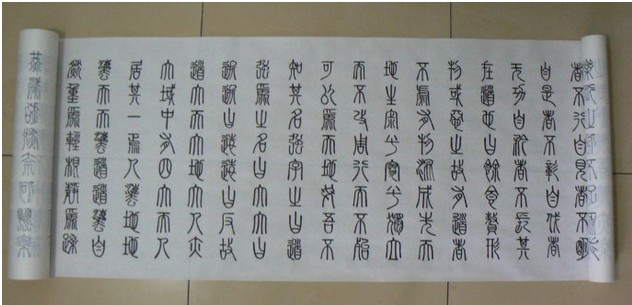 者不行自見者不明
自是者不彰自伐者
无功自矜者不長其
在道也曰餘食贅形
物或惡之故有道者
不處有物混成先天
地生寂兮寥兮獨立
而不改周行而不殆
可以為天地母吾不
知其名強字之曰道
強為之名曰大大曰
逝逝曰遠遠曰反故
道大天大地大人亦
大域中有四大而人
居其一焉人法地地
法天天法道道法自
然重為輕根靜為躁
燕處超然奈何萬乘